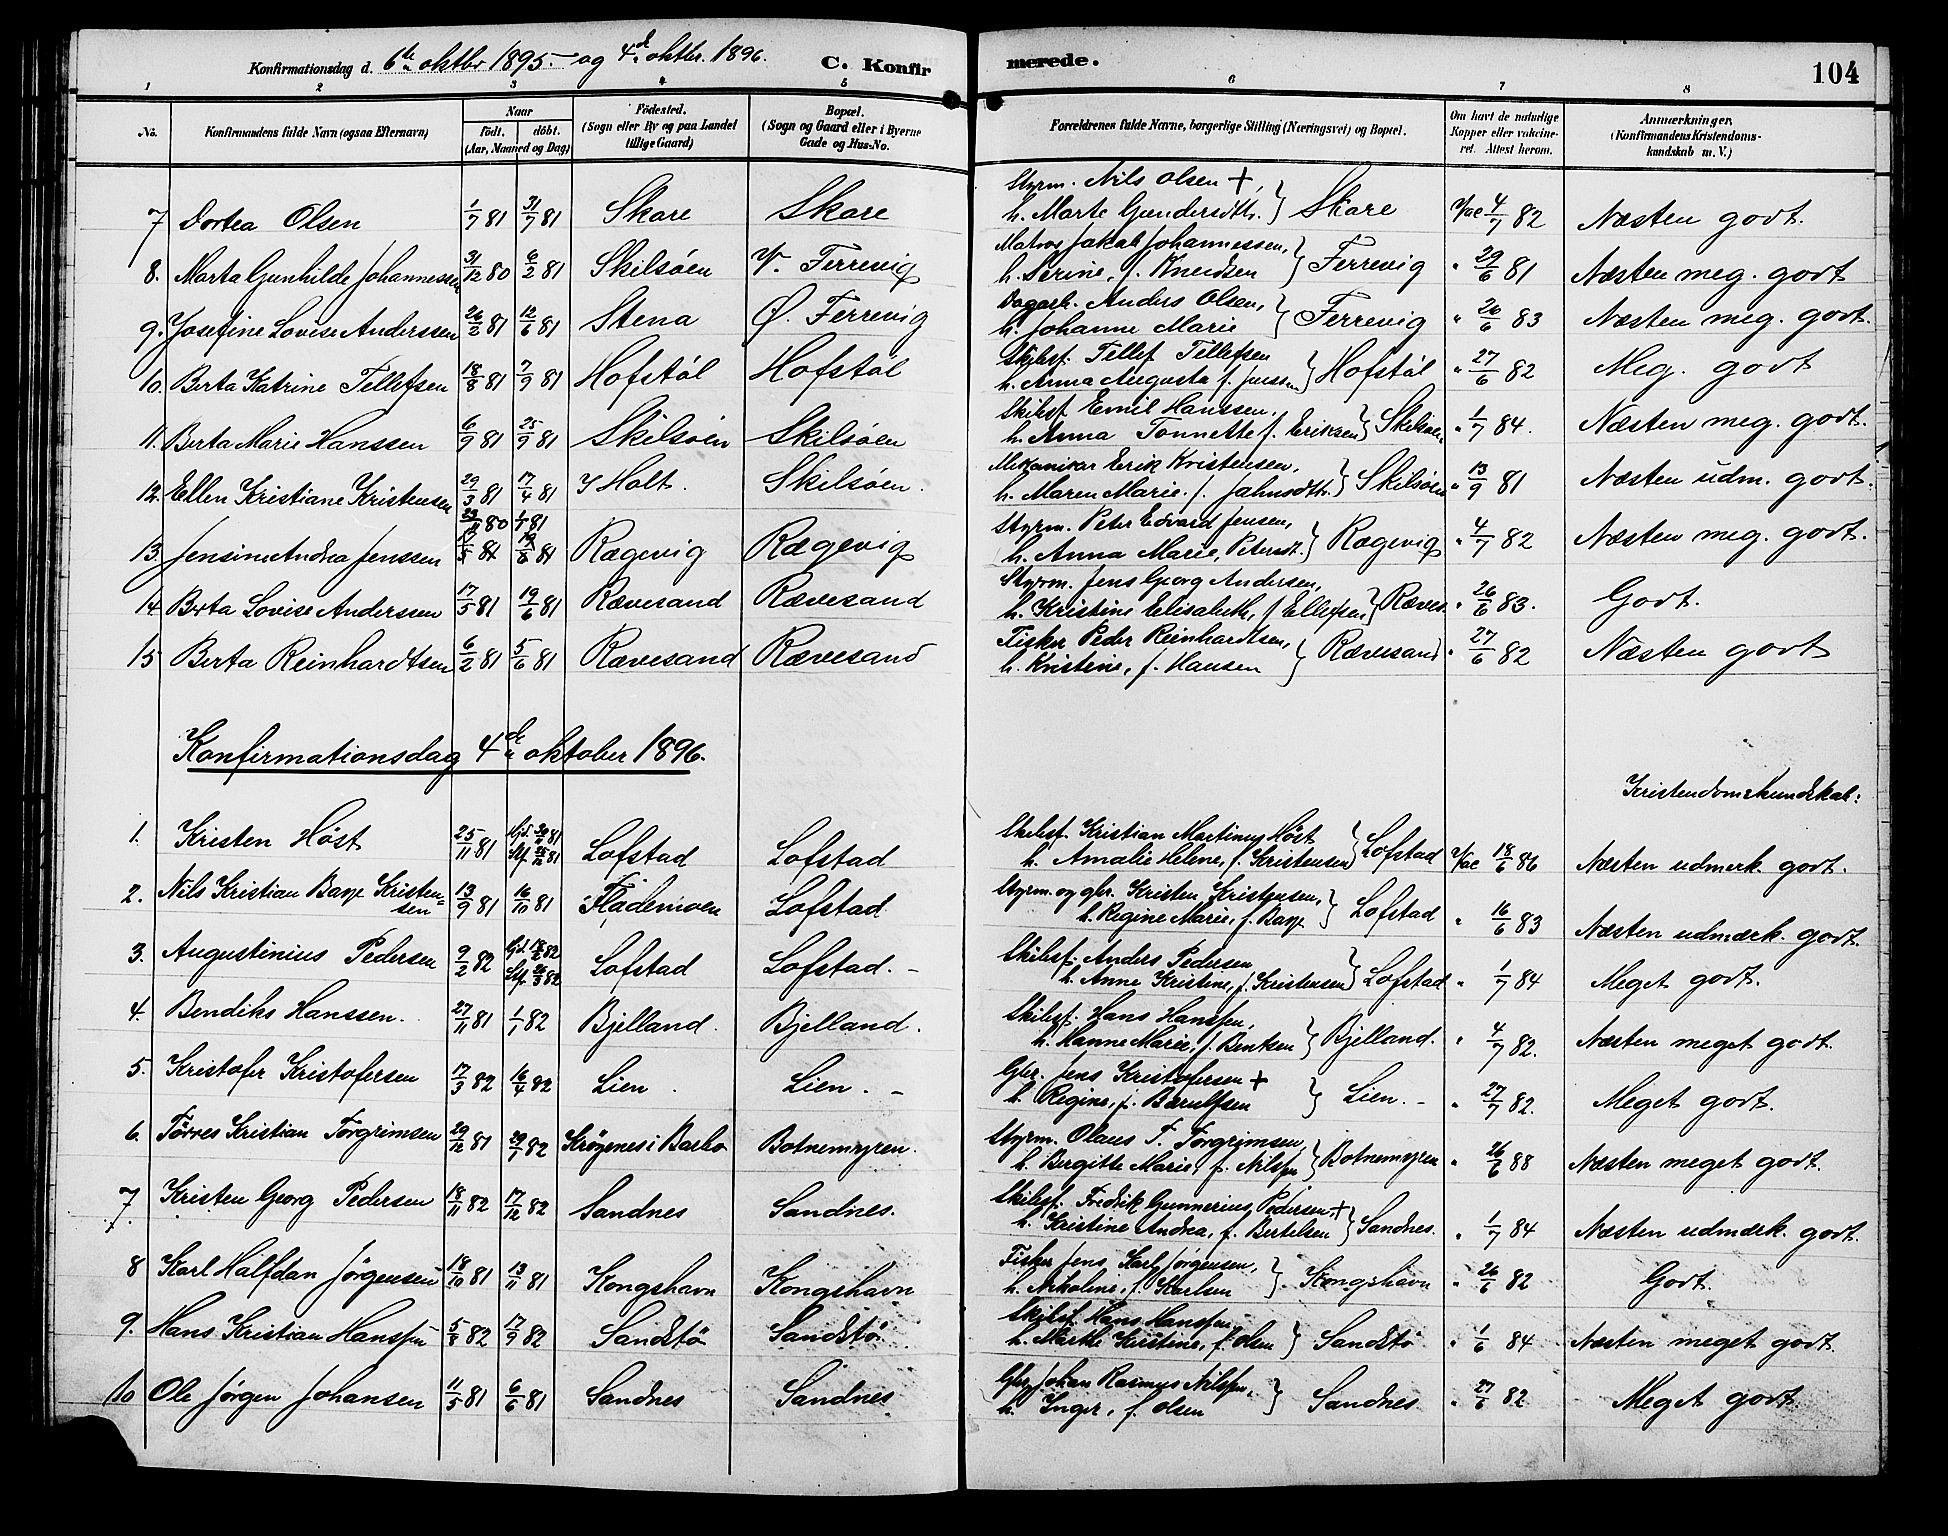 Konfirmationsdag d. 6te oktbr 1895. og 4d. oktbr. 1896. C. Konfir
merede. 104
1 2 3 4 5 6 7 8
No. Konfirmandens fulde Navn (ogsaa Efternavn) Naar födt. döbt. (Aar, Maaned og Dag) Födested. (Sogn eller By og paa Landet tillige Gaard) Bopæl. (Sogn og Gaard eller i Byerne Gade og Hus-No.
Forældrenes fulde Navne, borgerlige Stilling (Næringsvei) og Bopæl. Om havt de naturlige Kopper eller vakcineret. Attest herom. Anmærkninger. (Konfirmandens Kristendomskundskab m. V.)
7 Dortea Olsen 1/7 81 31/7 81 Skare Skare Styrm. Nils Olsen +, h. Marte Gundersdtr. } Skare Vac 4/7 82 Næsten godt.
8. Marta Gunhilde Johannessen 31/12 80 6/2 81 Skilsöen V. Ferrevig Matros Jakob Johannessen, h. Serine, f. Knudsen } Ferrevig " 29/6 81 Næsten meg. godt
9. Josefine Lovise Anderssen 26/2 81 12/6 81 Stena Ø. Ferrevig Dagarb. Anders Olsen, h. Johanne Marie } Ferrevig " 26/6 83 Næsten meg. godt.
10. Berta Katrine Tellefsen 18/8 81 7/9 81 Hofstöl Hofstöl Skibsf. Tellef Tellefsen h. Anna Augusta f. Jenssen } Hofstöl " 27/6 82 Meg. godt
11. Berta Marie Hanssen 6/9 81 25/9 81 Skilsöen Skilsöen Skibsf. Emil Hanssen, h. Anna Tonnette f. Eriksen } Skilsöen " 1/7 84. Næsten meg. godt.
12. Ellen Kristiane Kristensen 29/3 81 17/4 81 I Holt. Skilsöen. Mekaniker Erik Kristensen, h. Maren Marie. f. Jahnsdtr. } Skilsöen " 13/9 81 Næsten udm. godt.
13. Jensine Andrea Jenssen 80 1/1 81 81 Rægevig Rægevig Styrm. Peter Edvard Jensen, h. Anna Marie, Petersdt. } Rægevig " 4/7 82 Næsten meg. godt.
14 Berta Lovise Anderssen 17/5 81 19/6 81 Rævesand Rævesand Styrm. Jens Georg Andersen, h. Kristine Elisabeth, f. Ellefsen } Ræves. " 26/6 83. Godt.
15 Berta Reinhardtsen 6/2 81 5/6 81 Rævesand Rævesand Fisker Peder Reinhardtsen, h. Kristene, f. Hansen } Rævesand " 27/6 82 Næsten godt
Konfirmationsdag 4de oktober 1896.
Kristendomskundskab:
1. Kristen Höst 25/11 81 81 81 Lofstad Lofstad Skibsf. Kristian Martinus Höst h. Amalie Helene, f. Kristensen } Lofstad Vac 18/6 86 Næsten udmærk. godt.
2. Nils Kristian Kristensen 13/9 81 16/10 81 Flademoen Lofstad Styrm. og gbr. Kristen Kristensen, h. Regine Marie, f. } Lofstad " 16/6 83 Næsten udmærk. godt.
3. Augustinius Pedersen 9/2 82 82 82 Lofstad Lofstad. - Skibsf. Anders Pedersen h. Anne Kristine, f. Kristensen } Lofstad " 1/7 84 Meget godt.
4. Bendiks Hanssen. 27/11 81 1/1 82 Bjelland. Bjelland. Skibsf. Hans Hanssen, h. Hanne Marie, f. Bentsen } Bjelland. " 4/7 82. Næsten meget godt.
5. Kristofer Kristofersen 17/3 82 16/4 82 Lien. Lien. - Gbr. Jens Kristofersen + h. Regine, f. Bærulfsen } Lien. - " 27/7 82. Meget godt.
6. Törres Kristian Torgrimsen 29/12 81 29/1 82 Krögenes i Barbo Botnemyren. Styrm. Olaus T. Torgrimsen, h. Birgitte Marie, f. Nilssen } Botnemyren " 26/6 88 Næsten meget godt.
7. Kristen Georg Pedersen 18/11 82 17/12 82 Sandnes Sandnes. Skibsf. Fredrik Gunnerius Pedersen + h. Kristine Andrea, f. Bertelsen } Sandnes. " 1/7 84 Næsten udmærk. godt.
8 Karl Halfdan Jörgensen 18/10 81 13/11 81 Kongshavn Kongshavn Fisker Jens Karl Jörgensen, h. Nikoline, f. Karlsen } Kongshavn " 26/6 82 Godt.
9. Hans Kristian Hanssen 5/8 82 17/9 82 Sandstö Sandstö. Skibsf. Hans Hanssen, h. Marthe Kristine, f. Olsen } Sandstö " 1/6 84 Næsten meget godt.
10 Ole Jörgen Johansen 11/5 81 6/6 81 Sandnes Sandnes Gbr. Johan Rasmus Nilssen, h. Inger, f. Olsen } Sandnes. " 27/6 82 Meget godt.